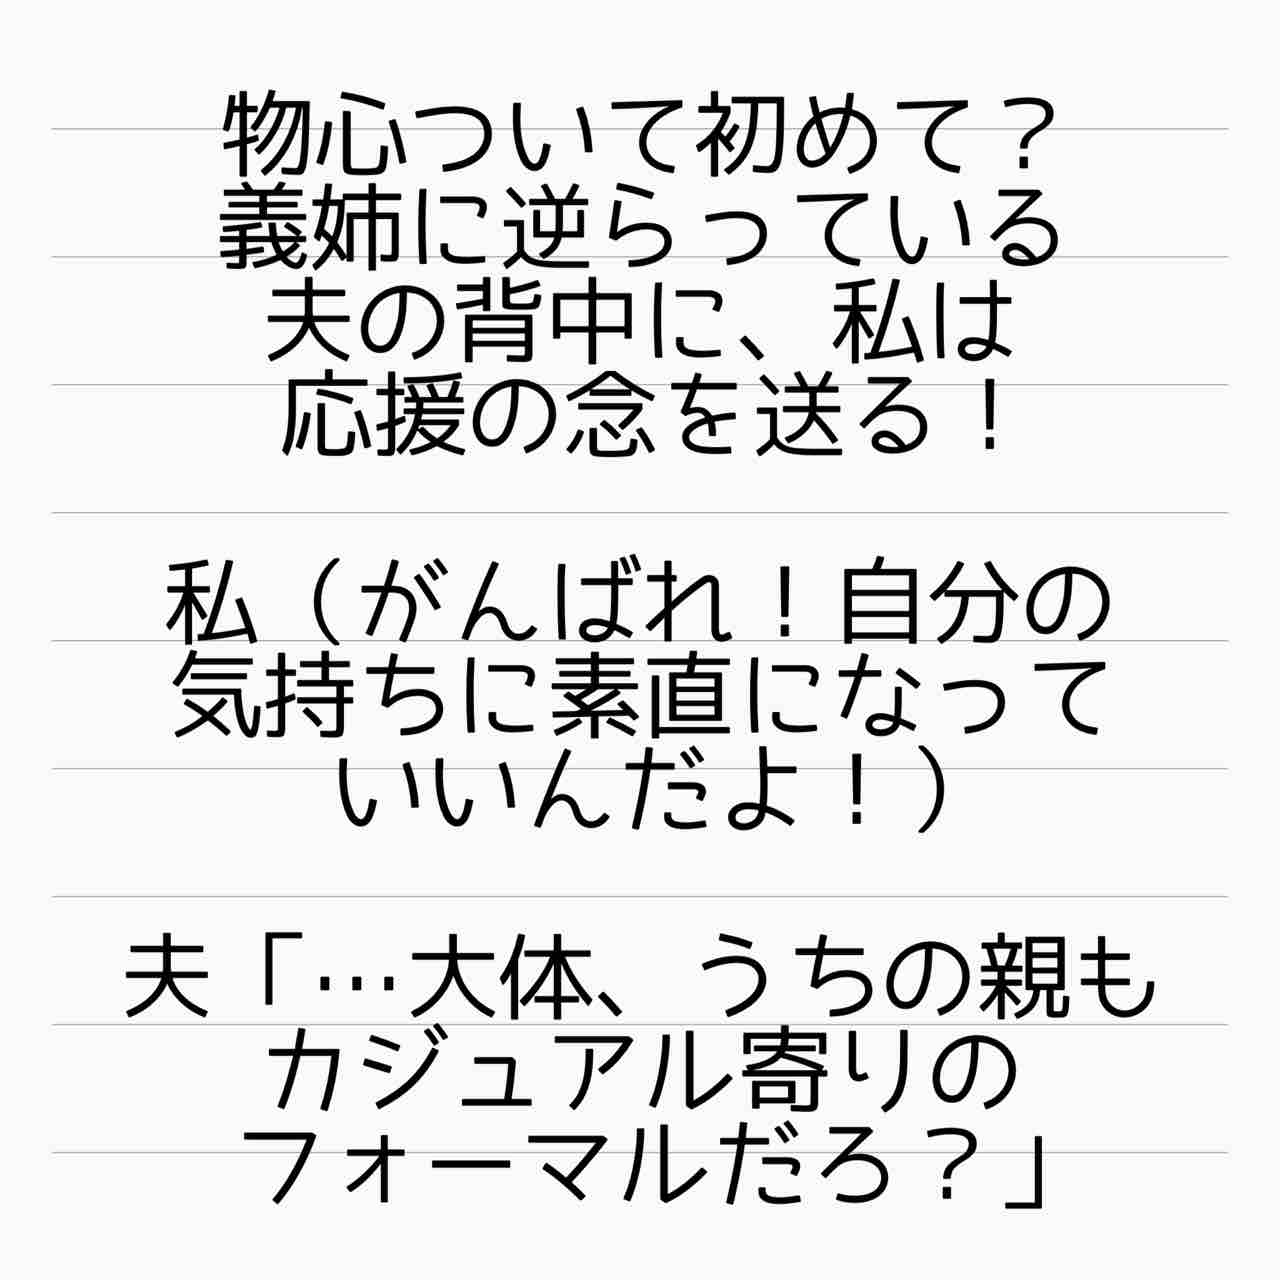 物心ついて初めて？
義姉に逆らっている
夫の背中に、私は
応援の念を送る！
私（がんばれ！自分の
気持ちに素直になって
いいんだよ！）
夫「…大体、うちの親も
カジュアル寄りの
フォーマルだろ？」